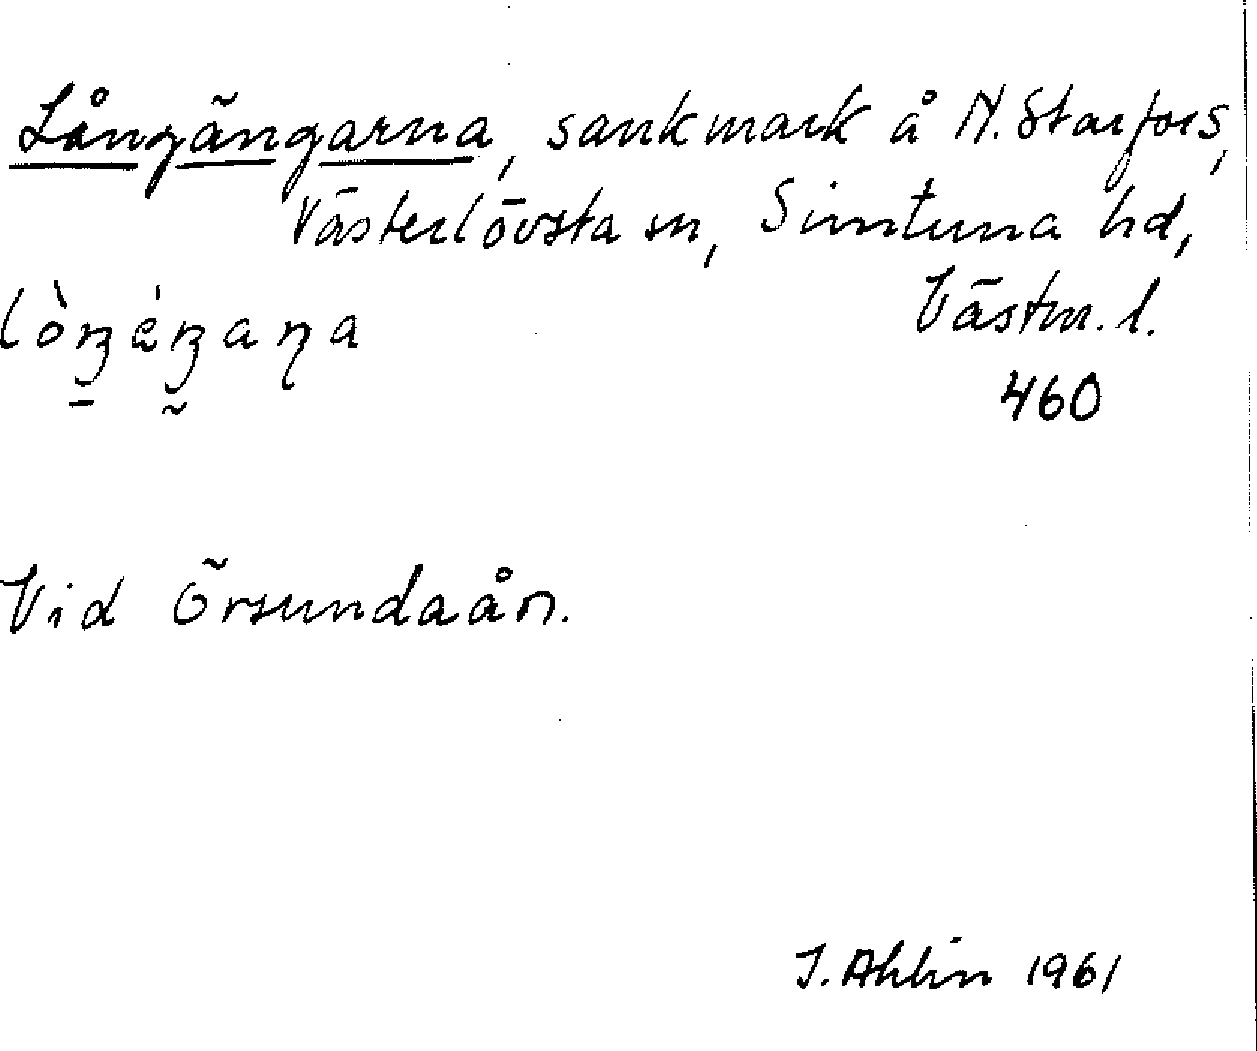 Långängarna, sankmark å N. Starfors,
Västerlövsta sn, Simtuna hd,
Västm. l.
460
Vid Örsundaån.
J. Ahlin 1961